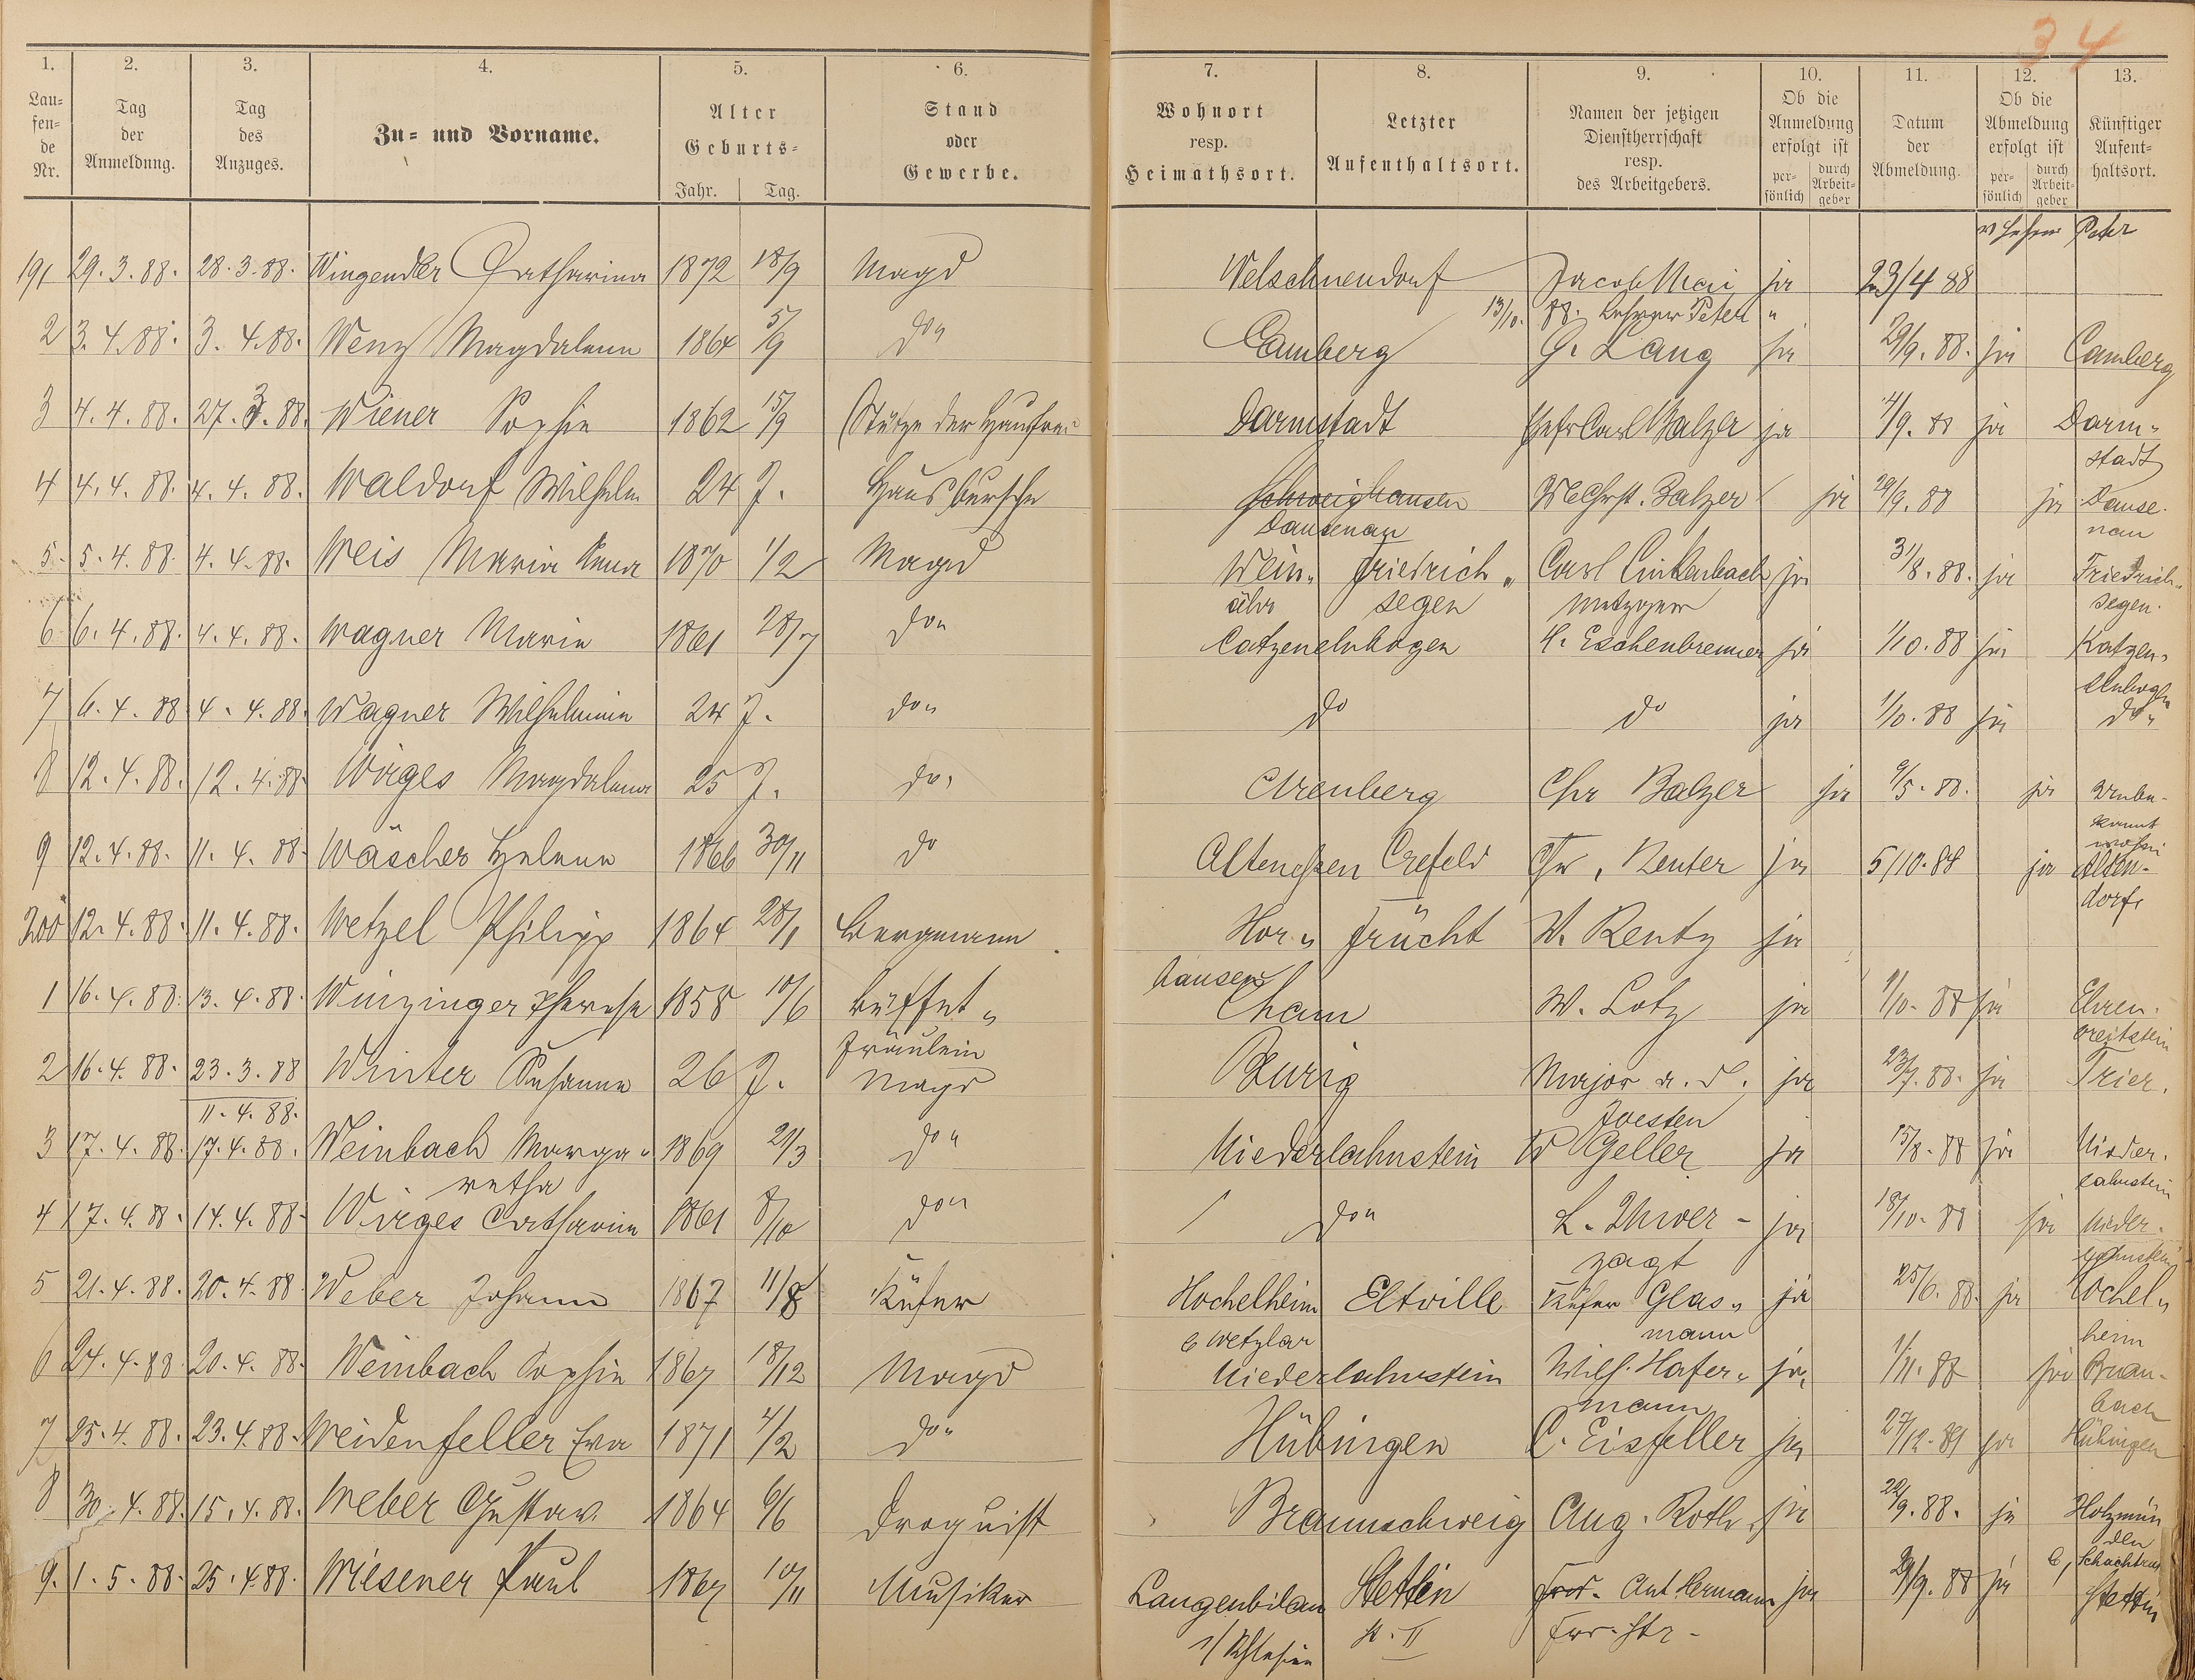 34
1. 2. 3. 4. 5. 6. 7. 8. 9. 10. 11. 12. 13.
Lau-
fen-
de
Nr.
Tag
der
Anmeldung.
Tag
des
Anzuges.
Zu- und Vorname.
Alter
Geburts-
Jahr. Tag.
Stand
oder
Gewerbe.
Wohnort
resp.
Heimathsort.
Letzter
Aufenthaltsort.
Namen der jetzigen
Dienstherrschaft
resp.
des Arbeitgebers.
Ob die
Anmeldung
erfolgt ist
per-
sönlich
durch
Arbeit-
geber
Datum
der
Abmeldung.
Ob die
Abmeldung
erfolgt ist
per-
sönlich
durch
Arbeit-
geber
Künftiger
Aufent-
haltsort.
Peter
191 29.3.88. 28.3.88. Wingendler Catharina 1872 18/9 Magd Welschneudorf Jacob Mai ja 23/4 88
13/10. 88. Lehrer Peter "
2 3.4.88. 3.4.88. Wenz Magdalena 1864 5/9 do" Camberg G. Lang ja 29/9.88. ja Camberg
3 4.4.88. 27.3.88. Wiener Sophie 1862 15/9 Stütze der Hausfrau Darmstadt Carl Balzer ja 4/9.88 ja Darm-
stadt
4 4.4.88. 4.4.88. Waldorf Wilhelm 24 J. Hausbursche Schweighausen Balzer ja 29/9.88 ja Dause-
Dausenau nau
5. 5.4.88. 4.4.88. Weis Maria Anna 1870 1/2 Magd Wein- Friedrich- Carl Linkenbach ja 31/8.88. ja Friedrich-
ähr segen Metzger segen.
6 6.4.88. 4.4.88. Wagner Marie 1861 28/7 do" Catzenelnbogen H. Eschenbrenner ja 1/10.88 ja Katzen-
elnbogen
7 6.4.88 4.4.88. Wagner Wilhelmine 24 J. do" do do ja 1/10.88 ja do"
8 12.4.88. 12.4.88. Wirges Magdalena 25 J. do. Arenberg Chr Balzer ja 9/5.88. ja Unbe-
kannt
wohin
9 12.4.88. 11.4.88. Wäscher Helene 1866 30/11 do Altenessen Crefeld Chr. Reuter ja 5/10.88 ja Alten-
dorf
200 12.4.88. 11.4.88. Wetzel Philipp 1864 28/1 Bergmann Hor- Frücht W. Rentz ja
hausen
1 16.4.88. 13.4.88. Winzinger Therese 1858 10/6 Büffet- Cham W. Lotz ja 1/10.88 ja Ehren-
Fräulein breitstein
2 16.4.88. 23.3.88 Winter Susanna 26 J. Magd Beurig Major a. D. ja 23/7.88. ja Trier.
11.4.88. Joesten
3 17.4.88. 17.4.88. Weinbach Marga- 1869 21/3 do" Niederlahnstein W Geller ja 15/8.88 ja Nieder-
retha lahnstein
4 17.4.88. 14.4.88. Wirges Catharina 1861 8/10 do" do" L. Unver- ja 18/10.88 ja Nieder-
zagt lahnstein
5 21.4.88. 20.4.88 Weber Johann 1867 11/8 Küfer Hochelheim Eltville Küfer Glas- ja 25/6.88. ja Hochel-
b Wetzlar mann heim
6 24.4.88 20.4.88. Weinbach Sophie 1867 18/12 Magd Niederlahnstein Wilh. Hafer- ja. 1/11.88 ja Brau-
mann bach
7 25.4.88. 23.4.88. Weidenfeller Eva 1871 4/2 do" Hübingen C. Eisfeller ja 27/12.89 ja Hübingen
8 30.4.88. 15.4.88. Weber Gustav 1864 6/6 Droguist Braunschweig Aug. Roth ja 22/9.88. ja Holzmin
den
9. 1.5.88. 25.4.88. Wiesener Paul 1867 10/11 Musiker Langenbilau Stettin Ant Hermann ja 29/9.88 ja Stettin
i/Schlesien